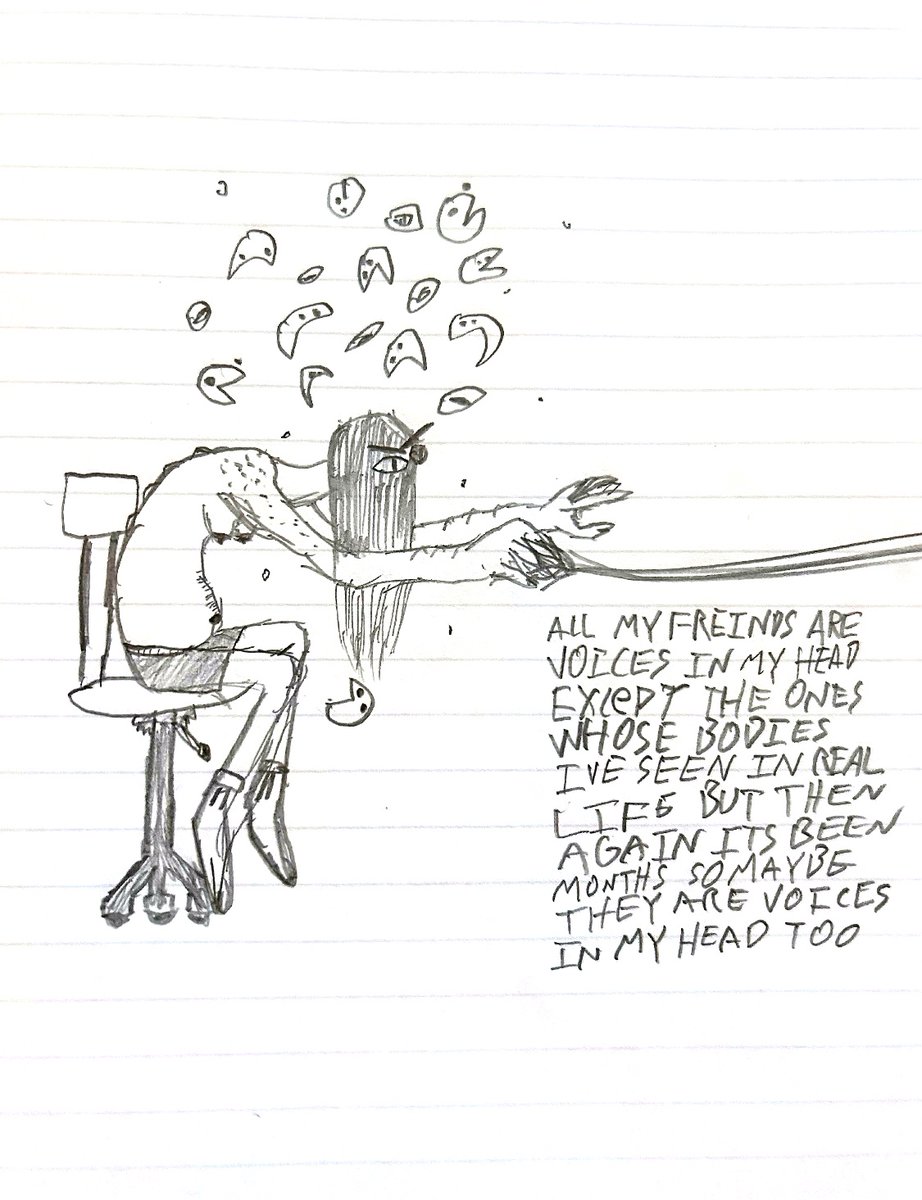 ALL MY FREINDS ARE
VOICES IN MY HEAD
EXCEPT THE ONES
WHOSE BODIES
IVE SEEN IN REAL
LIFE BUT THEN
AGAIN ITS BEEN
MONTHS SO MAYBE
THEY ARE VOICES
IN MY HEAD TOO